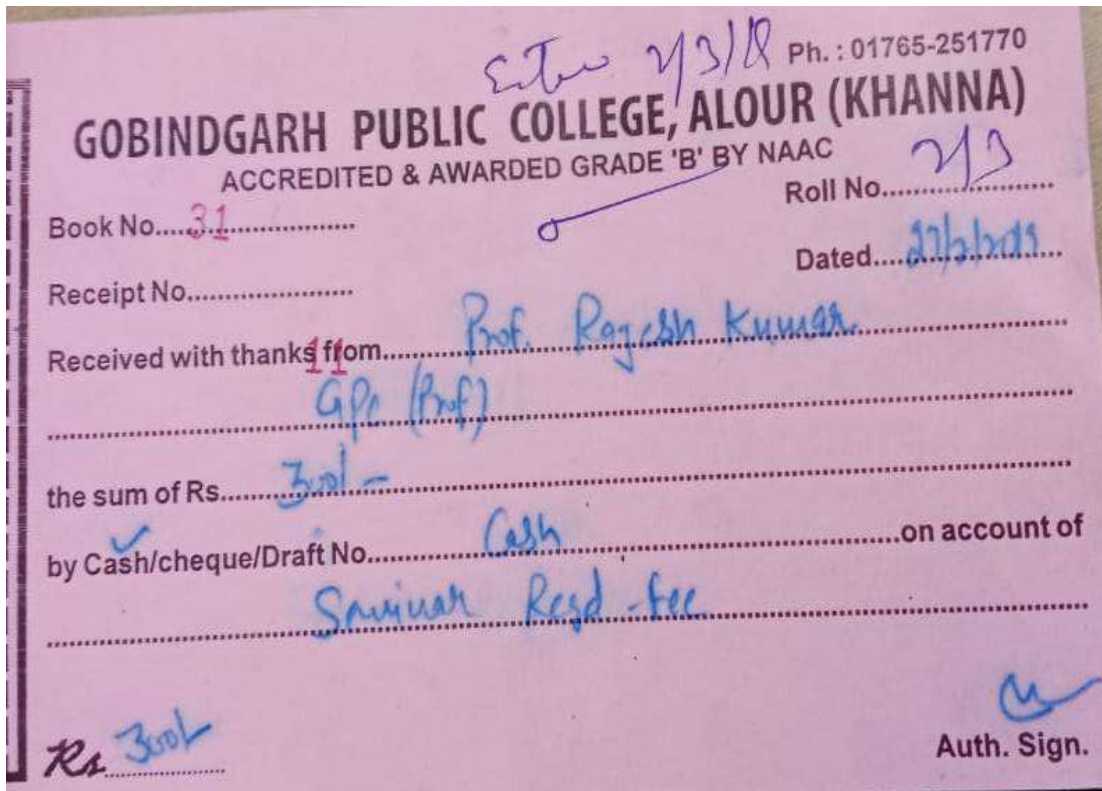 2/3/18 Ph. : 01765-251770
GOBINDGARH PUBLIC COLLEGE, ALOUR (KHANNA)
ACCREDITED & AWARDED GRADE 'B' BY NAAC
Roll No. 2/3
Book No. 31
Dated
Receipt No. 11
Received with thanks from Prof. Rajesh Kumar
GPC (Prof)
the sum of Rs. 300/-
by Cash/cheque/Draft No. Cash on account of
Seminar Regd. fee
Rs. 300/-
Auth. Sign.